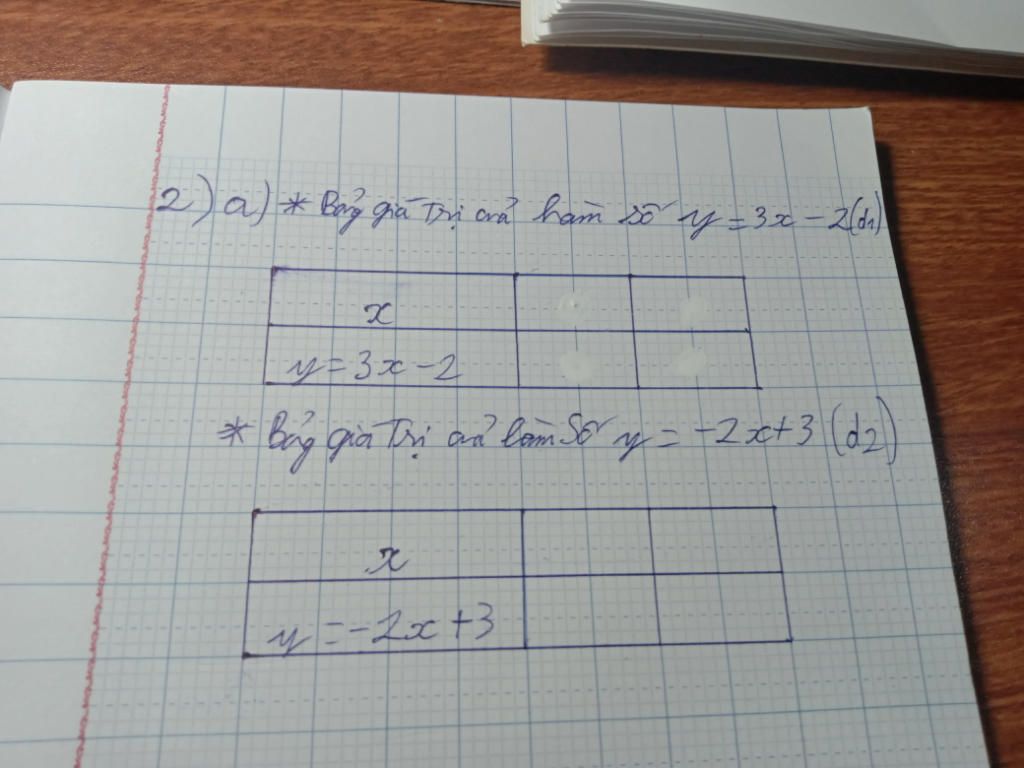 2) a) * Bảng giá trị của hàm số y = 3x - 2 (d1)
x
y = 3x - 2
* Bảng giá trị của hàm số y = -2x + 3 (d2)
x
y = -2x + 3